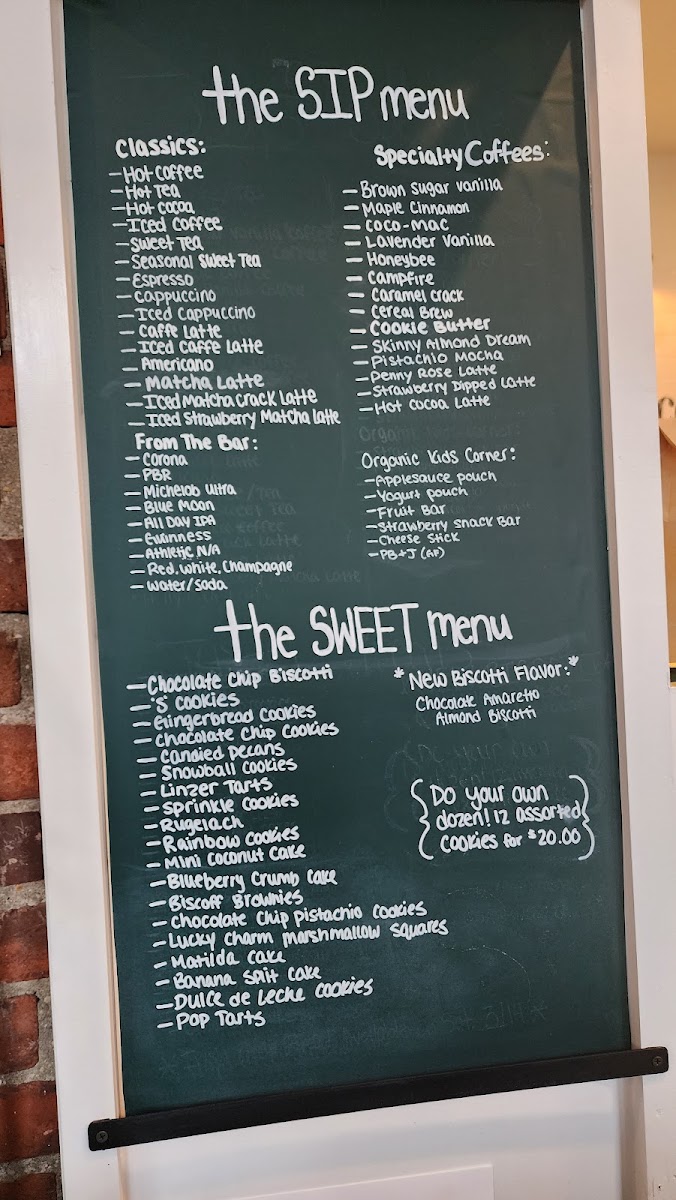 the SIP menu
Classics:
- Hot Coffee
- Hot Tea
- Hot cocoa
- Iced Coffee
- Sweet Tea
- Seasonal Sweet Tea
- Espresso
- Cappuccino
- Iced Cappuccino
- Caffe Latte
- Iced Caffe Latte
- Americano
- Matcha Latte
- Iced Matcha Crack Latte
- Iced Strawberry Matcha Latte
From The Bar:
- Corona
- PBR
- Michelob Ultra
- Blue Moon
- All Day IPA
- Guinness
- Athletic N/A
- Red, White, Champagne
- Water/Soda
Specialty Coffees:
- Brown Sugar Vanilla
- Maple Cinnamon
- Coco-Mac
- Lavender Vanilla
- Honeybee
- Campfire
- Caramel Crack
- Cereal Brew
- Cookie Butter
- Skinny Almond Dream
- Pistachio Mocha
- Penny Rose Latte
- Strawberry Dipped Latte
- Hot Cocoa Latte
Organic Kids Corner:
- Applesauce Pouch
- Yogurt Pouch
- Fruit Bar
- Strawberry Snack Bar
- Cheese Stick
- PB+J (GF)
the SWEET menu
- Chocolate Chip Biscotti
- 'S' Cookies
- Gingerbread Cookies
- Chocolate Chip Cookies
- Candied Pecans
- Snowball Cookies
- Linzer Tarts
- Sprinkle Cookies
- Rugelach
- Rainbow Cookies
- Mini Coconut Cake
- Blueberry Crumb Cake
- Biscoff Brownies
- Chocolate Chip Pistachio Cookies
- Lucky Charm Marshmallow Squares
- Matilda Cake
- Banana Split Cake
- Dulce de Leche Cookies
- Pop Tarts
*New Biscotti Flavor:*
Chocolate Amaretto
Almond Biscotti
{Do your own
dozen! 12 assorted
cookies for $20.00}